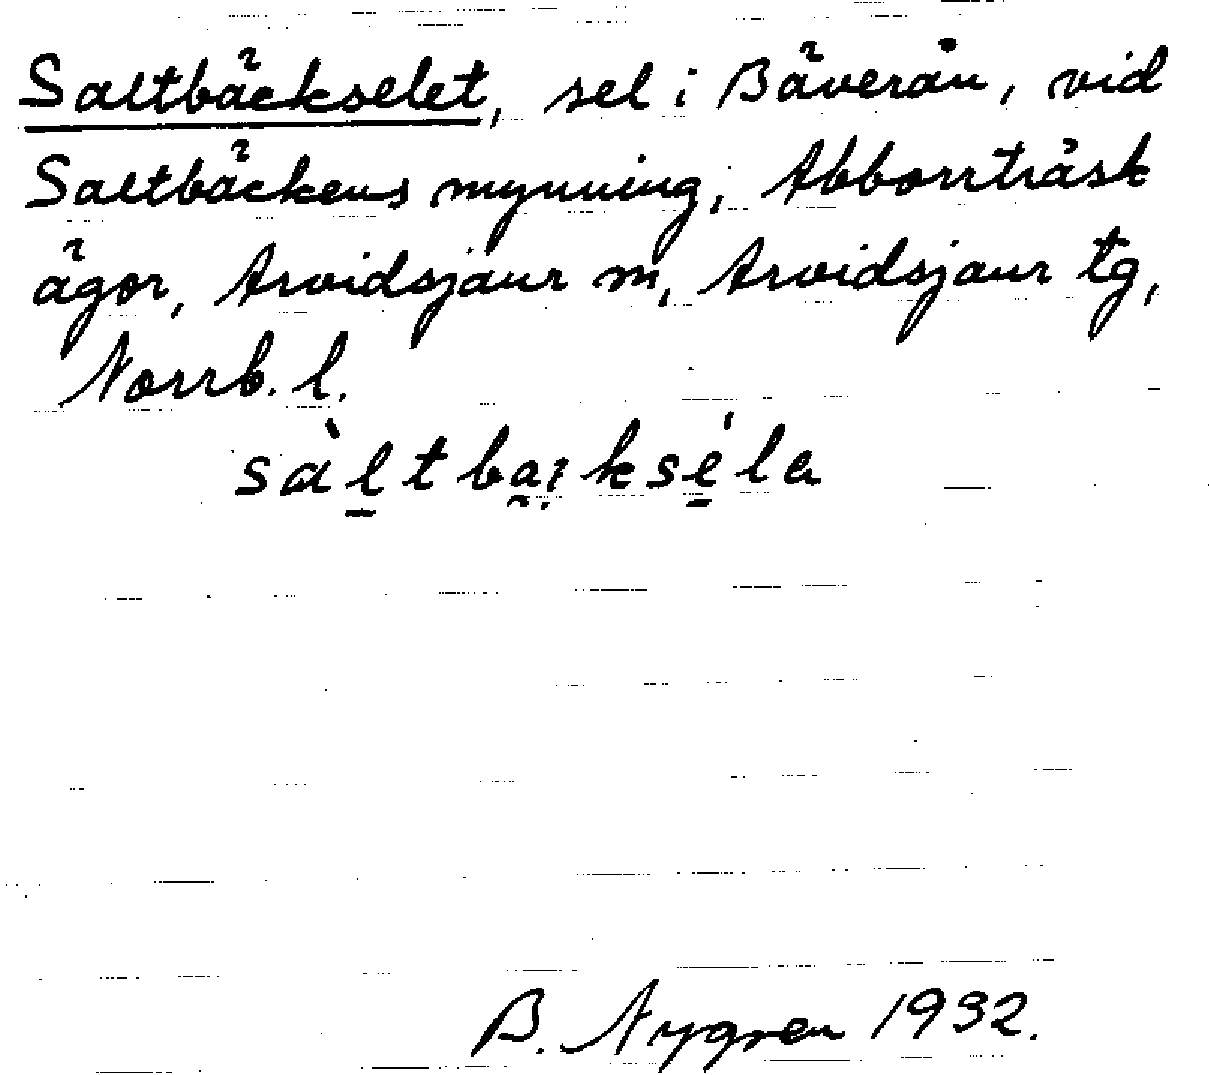 Saltbäckselet, sel i Bäverån, vid
Saltbäckens mynning, Abborrträsk
ägor, Arvidsjaur sn, Arvidsjaur tg,
Norrb. l.
sàltbaiksélа
B. Nygren 1932.